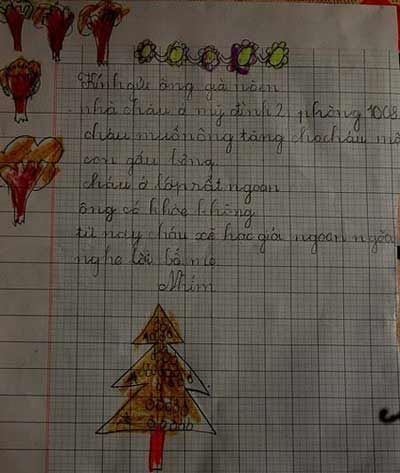 Kính gửi ông già nôen
nhà cháu ở mỹ đình 2, phòng 1008
cháu muốn ông tặng cho cháu mộ
con gấu bông
cháu ở lớp rất ngoan
ông có khỏe không
từ nay cháu xẽ học giỏi ngoan ngoã
nghe lời bố mẹ
Nhím